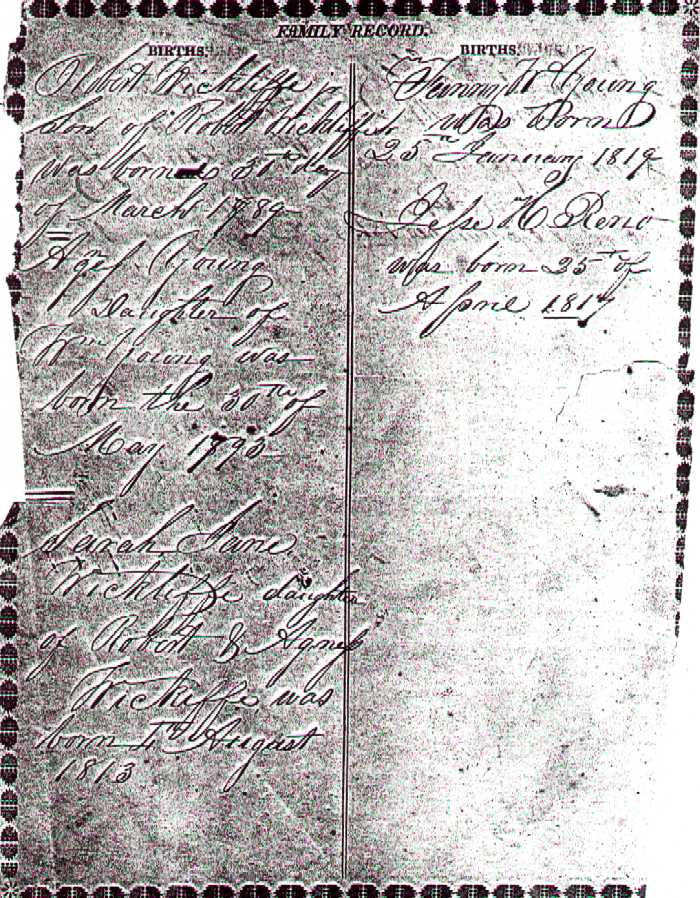 FAMILY RECORD.
BIRTHS.
Robert Wickliffe jr
Son of Robert Wickliffe
was born 30th day
of March 1789
Agnes Young
Daughter of
Wm Young was
born the 30th of
May 1793
Sarah Jane
Wickliffe daughter
of Robert & Agness
Wickliffe was
born 4th August
1813
BIRTHS.
Fanny W Young
Was Born
25 January 1819
Jesse H. Reno
was born 25th of
April 1817